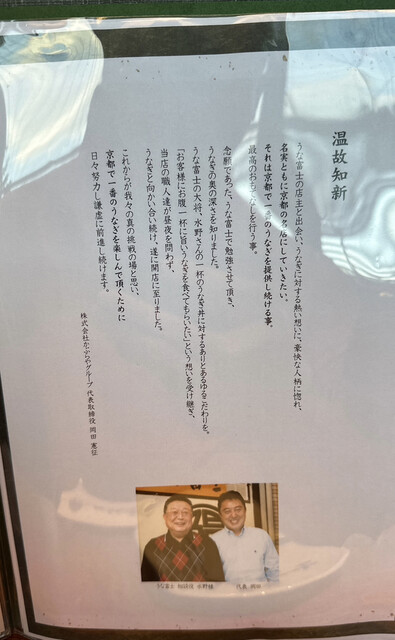 温故知新
うな富士の店主と出会い、うなぎに対する熱い想いに、豪快な人柄に惚れ、
名実ともに京都の名店にしていきたい。
それは京都で一番のうなぎを提供し続ける事。
最高のおもてなしを行う事。
念願であった、うな富士で勉強させて頂き、
うなぎの奥の深さを知りました。
うな富士の大将、水野さんの一杯のうなぎ丼に対するありとあらゆるこだわりを。
「お客様にお腹一杯に旨いうなぎを食べてもらいたい」という想いを受け継ぎ、
当店の職人達が昼夜を問わず、
うなぎと向かい合い続け、遂に開店に至りました。
これからが我々の真の挑戦の場と思い、
京都で一番のうなぎを楽しんで頂くために
日々努力し謙虚に前進し続けます。
株式会社かぶらやグループ 代表取締役 岡田 憲征
うな富士 相談役 水野様
代表 岡田